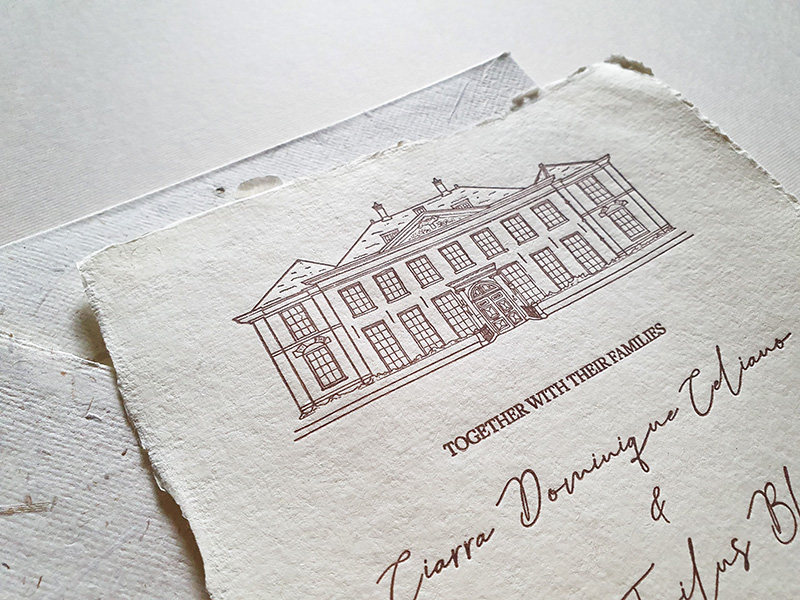 TOGETHER WITH THEIR FAMILIES
Ciarra Dominique Celiano
&